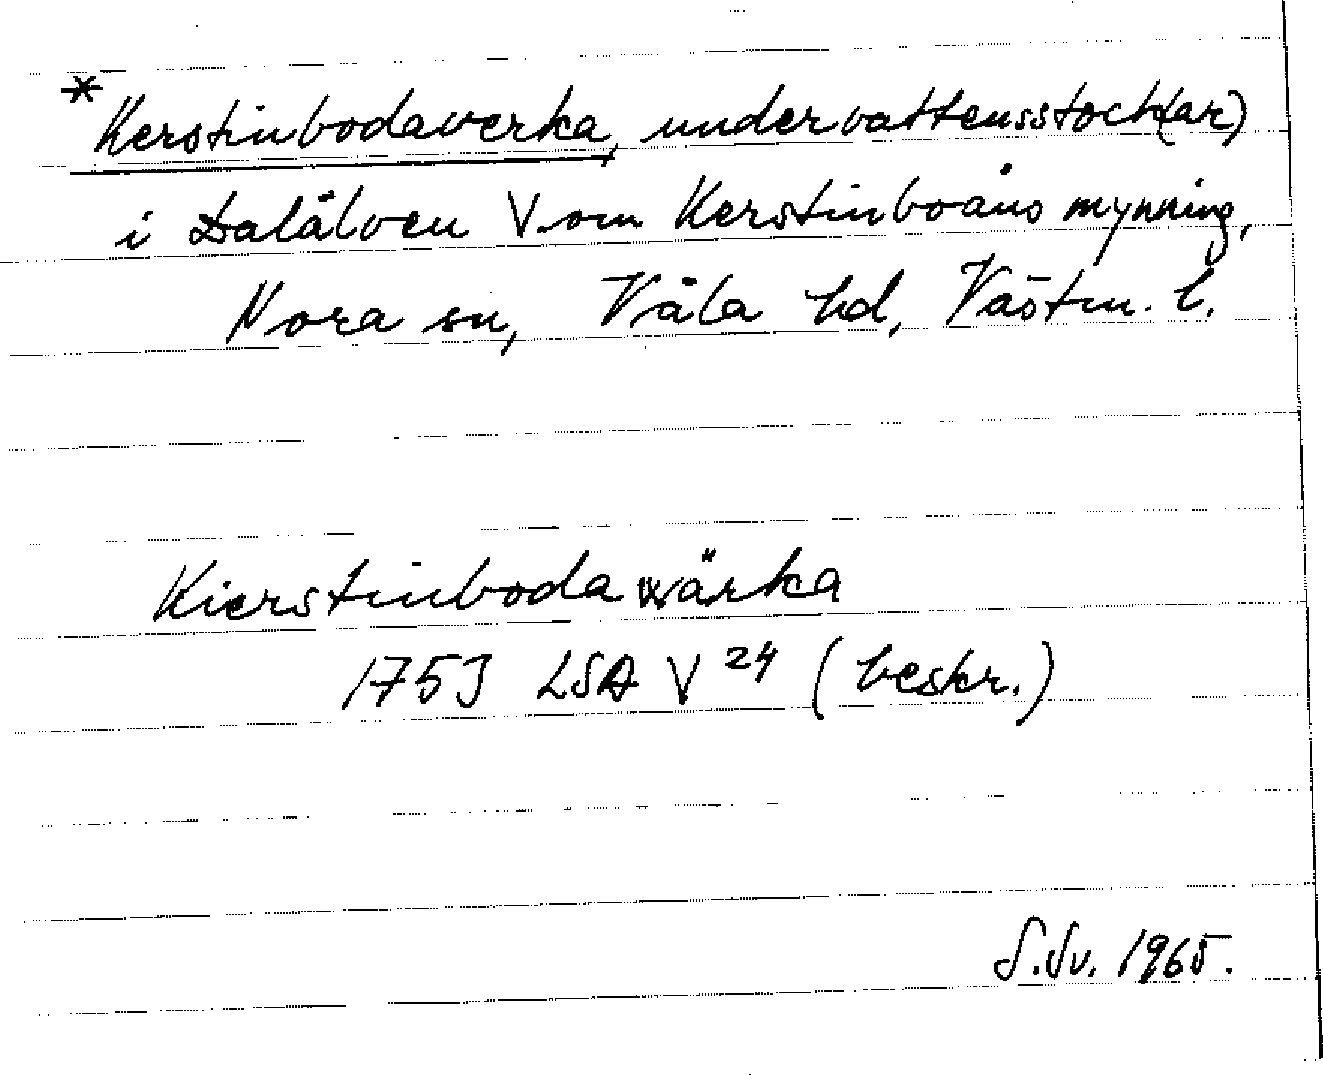 *Kerstinbodaverka, undervattensstock(ar)
i Dalälven V.om Kerstinboåns mynning,
Nora sn, Våla hd, Västm. l.
Kierstinboda wärka
1753 LSA V 24 (beskr.)
S.Sv. 1965.